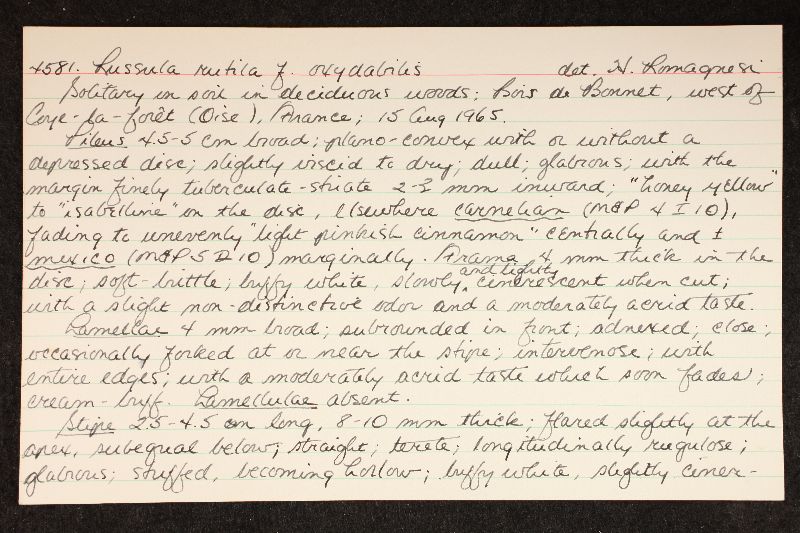 4581. Russula rutila f. oxydabilis det. H. Romagnesi
Solitary in soil in deciduous woods; Bois de Bonnet, west of
Coye-la-forêt (Oise), France; 15 Aug 1965.
Pileus 4.5-5 cm broad; plano-convex with or without a
depressed disc; slightly viscid to dry; dull; glabrous; with the
margin finely tuberculate-striate 2-3 mm inward; "honey yellow"
to "isabelline" on the disc, elsewhere carnelian (M&P 4 I 10),
fading to unevenly "light pinkish cinnamon" centrally and ±
mexico (M&P 5 D 10) marginally. Trama 4 mm thick in the
disc; soft-brittle; buffy white, slowly and lightly cinerescent when cut;
with a slight non-distinctive odor and a moderately acrid taste.
Lamellae 4 mm broad; subrounded in front; adnexed; close;
occasionally forked at or near the stipe; intervenose; with
entire edges; with a moderately acrid taste which soon fades;
cream-buff. Lamellulae absent.
Stipe 2.5-4.5 cm long, 8-10 mm thick; flared slightly at the
apex, subequal below; straight; terete; longitudinally rugulose;
glabrous; stuffed, becoming hollow; buffy white, slightly ciner-